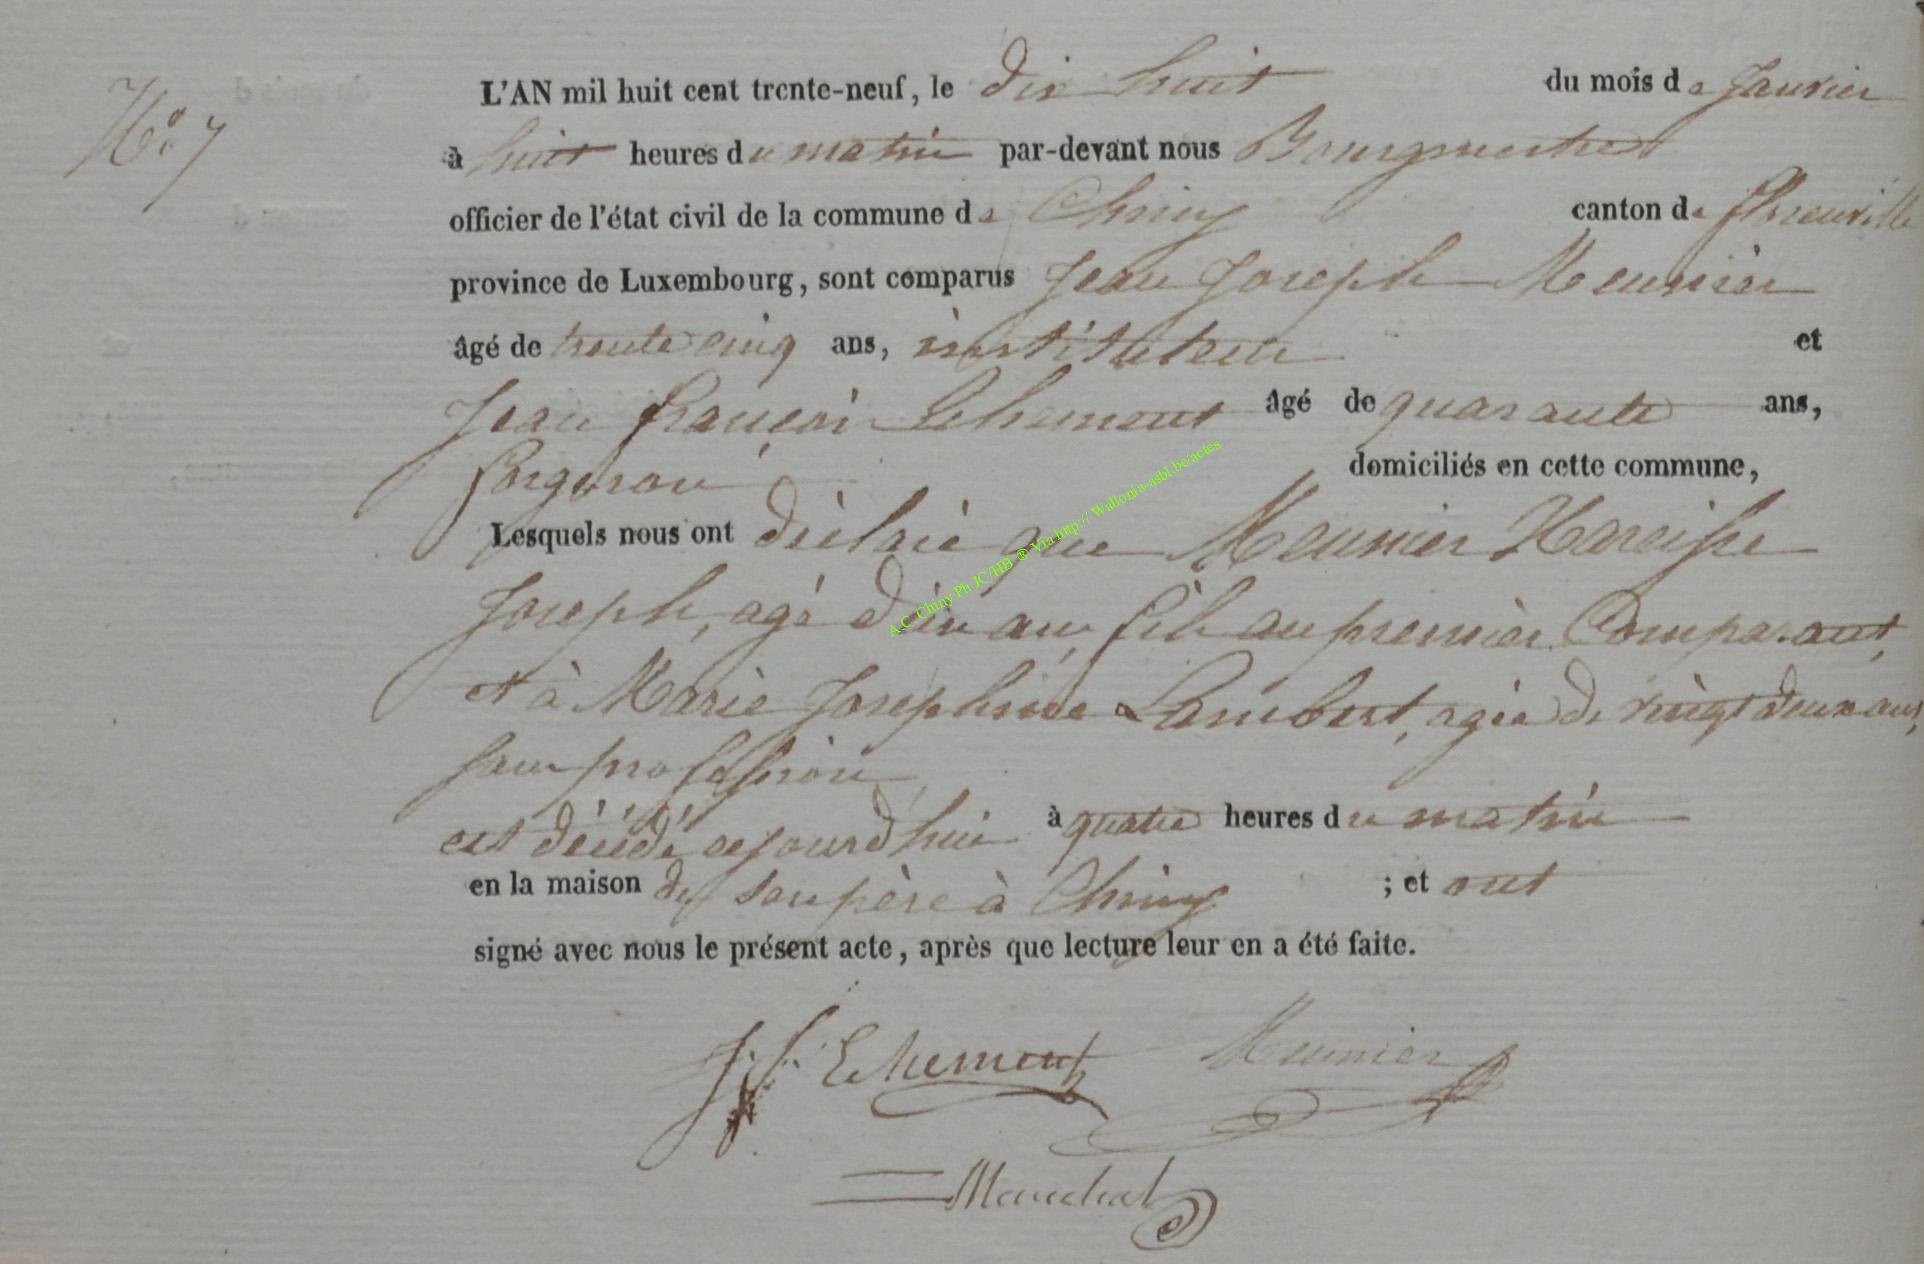 N° 7
L'AN mil huit cent trente-neuf, le dix huit du mois de Janvier
à huit heures du matin par-devant nous Bourgmestre
officier de l'état civil de la commune de Chiny canton de florenville
province de Luxembourg, sont comparus Jean Joseph Meunier
âgé de trente cinq ans, instituteur et
Jean françois Lehemont âgé de quarante ans,
forgeron domiciliés en cette commune,
Lesquels nous ont déclaré que Meunier Narcisse
Joseph, agé d'un an, fils au premier Comparant,
et à Marie Josephine Lambert, agée de vingt deux ans,
sans profession,
est décédé cejourd'hui à quatre heures du matin
en la maison de son père à Chiny ; et ont
signé avec nous le présent acte, après que lecture leur en a été faite.
A.C. Chiny Ph JC/HB ® Via http:// Wallonia-asbl.be/actes
J. f. Lehemont Meunier
Marechal